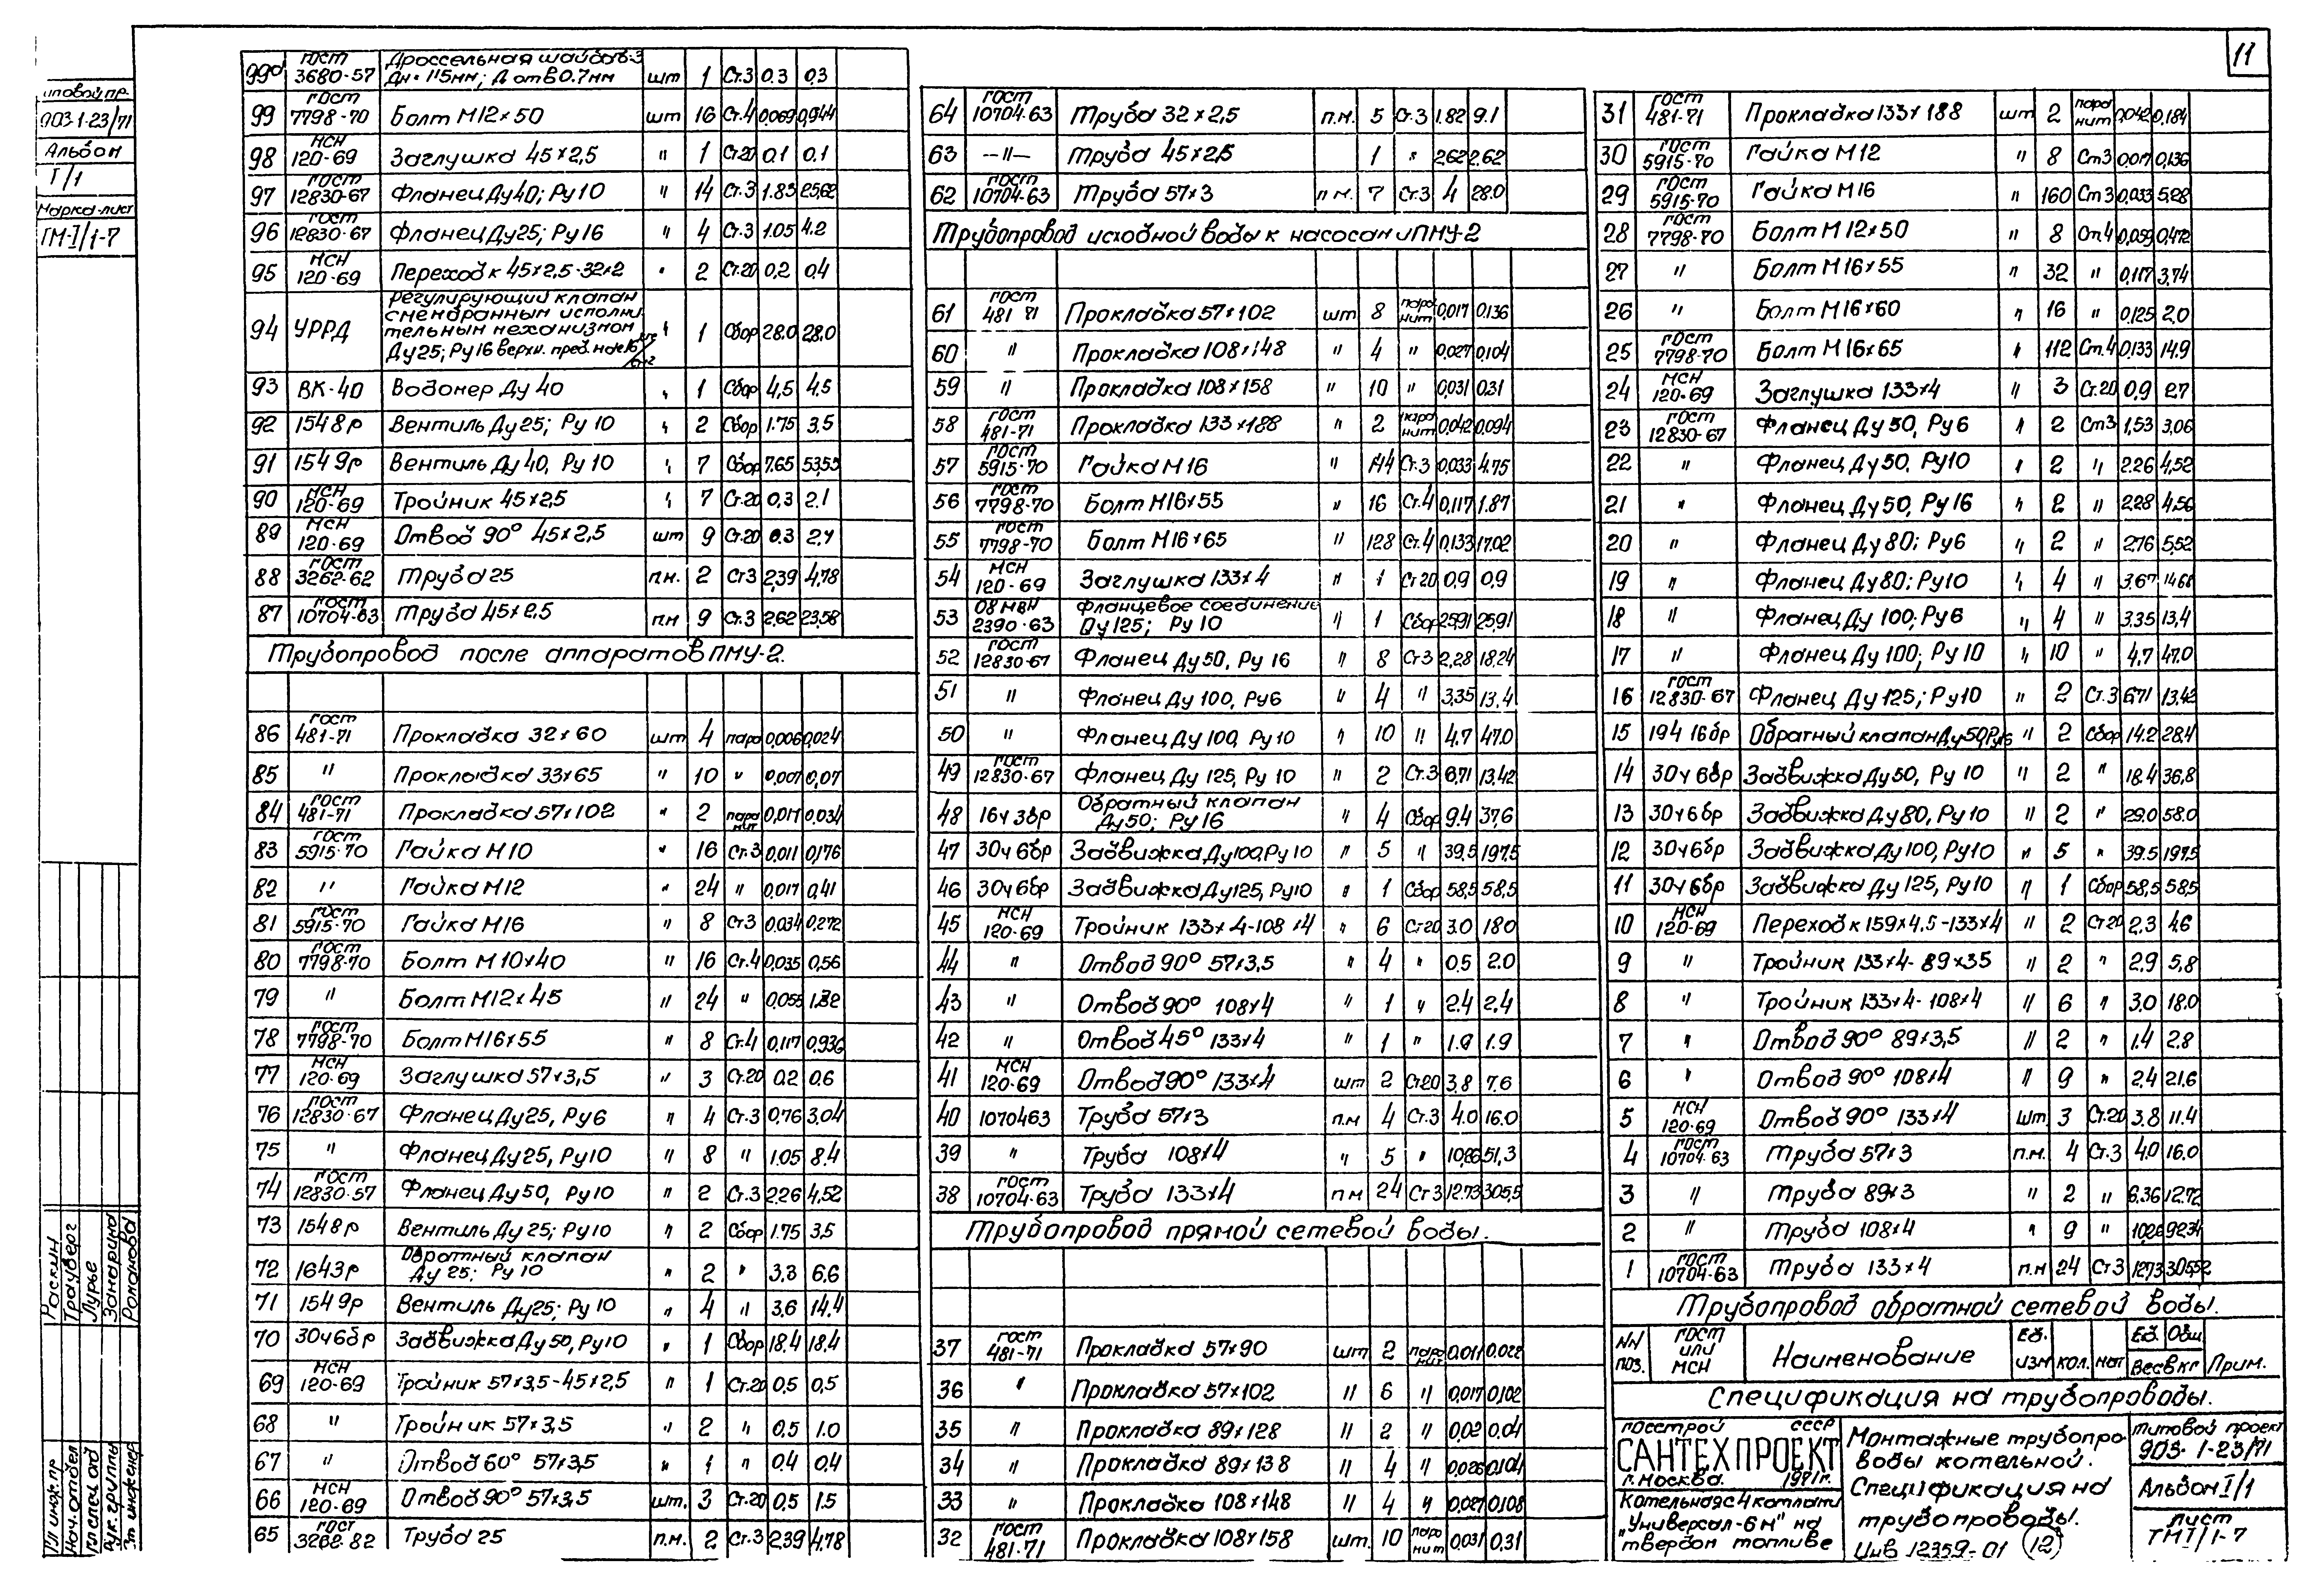 11
иповой пр.
903-1-23/71
Альбом
I/1
Марка-лист
ТМ-I/1-7
99а ГОСТ 3680-57 Дроссельная шайба Дн=115мм; d отв 0.7мм шт 1 Ст.3 0.3 0,3
99 ГОСТ 7798-70 Болт М12×50 шт 16 Ст.4 0,069 0,944
98 МСН 120-69 Заглушка 45×2,5 " 1 Ст.20 0.1 0.1
97 ГОСТ 12830-67 Фланец Ду40; Ру10 " 14 Ст.3 1.83 25,62
96 ГОСТ 12830-67 Фланец Ду25; Ру16 " 4 Ст.3 1.05 4.2
95 МСН 120-69 Переход к 45×2,5-32×2 " 2 Ст.20 0,2 0,4
94 УРРД Регулирующий клапан
с мембранным исполни-
тельным механизмом
Ду25; Ру16 верхн. пред. " 1 Сбор 28.0 28.0
93 ВК-40 Водомер Ду 40 " 1 Сбор 4,5 4,5
92 1548р Вентиль Ду25; Ру 10 " 2 Сбор 1.75 3,5
91 1549р Вентиль Ду 40, Ру 10 " 7 Сбор 7.65 53,55
90 МСН 120-69 Тройник 45×2,5 " 7 Ст.20 0,3 2.1
89 МСН 120-69 Отвод 90° 45×2,5 шт 9 Ст.20 0.3 2.7
88 ГОСТ 3262-62 Труба 25 п.м. 2 Ст3 2,39 4,78
87 ГОСТ 10704-63 Труба 45×2,5 пм 9 Ст.3 2,62 23,58
Трубопровод после аппаратов ПМУ-2.
86 ГОСТ 481-71 Прокладка 32×60 шт 4 паро 0,006 0,024
85 " Прокладка 33×65 " 10 " 0,007 0,07
84 ГОСТ 481-71 Прокладка 57×102 " 2 паронит 0,017 0,034
83 ГОСТ 5915-70 Гайка М10 " 16 Ст.3 0,011 0,176
82 " Гайка М12 " 24 " 0,017 0,41
81 ГОСТ 5915-70 Гайка М16 " 8 Ст3 0,034 0,272
80 ГОСТ 7798-70 Болт М10×40 " 16 Ст.4 0,035 0,56
79 " Болт М12×45 " 24 " 0,055 1,32
78 ГОСТ 7798-70 Болт М16×55 " 8 Ст.4 0,117 0,936
77 МСН 120-69 Заглушка 57×3,5 " 3 Ст.20 0.2 0.6
76 ГОСТ 12830-67 Фланец Ду25, Ру6 " 4 Ст.3 0,76 3,04
75 " Фланец Ду25, Ру10 " 8 " 1.05 8.4
74 ГОСТ 12830-57 Фланец Ду50, Ру10 " 2 Ст.3 2,26 4,52
73 1548р Вентиль Ду 25; Ру10 " 2 Сбор 1.75 3.5
72 1643р Обратный клапан
Ду 25; Ру 10 " 2 " 3.3 6.6
71 1549р Вентиль Ду25; Ру 10 " 4 " 3.6 14.4
70 30ч6бр Задвижка Ду50, Ру10 " 1 Сбор 18.4 18.4
69 МСН 120-69 Тройник 57×3,5-45×2,5 " 1 Ст.20 0,5 0,5
68 " Тройник 57×3,5 " 2 " 0,5 1.0
67 " Отвод 60° 57×3,5 " 1 " 0.4 0.4
66 МСН 120-69 Отвод 90° 57×3,5 шт. 3 Ст.20 0,5 1.5
65 ГОСТ 3262-82 Труба 25 п.м. 2 Ст.3 2,39 4,78
64 ГОСТ 10704-63 Труба 32×2,5 п.м. 5 Ст.3 1.82 9.1
63 —"— Труба 45×2,5 1 " 2,62 2,62
62 ГОСТ 10704-63 Труба 57×3 п.м. 7 Ст.3 4 28.0
Трубопровод исходной воды к насосам и ПМУ-2
61 ГОСТ 481-71 Прокладка 57×102 шт 8 паронит 0,017 0,136
60 " Прокладка 108×148 " 4 " 0,027 0,104
59 " Прокладка 108×158 " 10 " 0,031 0,31
58 ГОСТ 481-71 Прокладка 133×188 " 2 паронит 0,042 0,094
57 ГОСТ 5915-70 Гайка М16 " 144 Ст.3 0,033 4.75
56 ГОСТ 7798-70 Болт М16×55 " 16 Ст.4 0,117 1.87
55 ГОСТ 7798-70 Болт М16×65 " 128 Ст.4 0,133 17.02
54 МСН 120-69 Заглушка 133×4 " 1 Ст20 0,9 0,9
53 08 МВН 2390-63 Фланцевое соединение
Ду125; Ру 10 " 1 Сбор 25,91 25,91
52 ГОСТ 12830-67 Фланец Ду50, Ру 16 " 8 Ст3 2,28 18,24
51 " Фланец Ду 100, Ру6 " 4 " 3,35 13,4
50 " Фланец Ду 100, Ру 10 " 10 " 4,7 47.0
49 ГОСТ 12830-67 Фланец Ду 125, Ру 10 " 2 Ст.3 6,71 13,42
48 16ч 3бр Обратный клапан
Ду50; Ру16 " 4 Сбор 9.4 37,6
47 30ч 6бр Задвижка Ду100, Ру10 " 5 " 39,5 197,5
46 30ч6бр Задвижка Ду125, Ру10 " 1 Сбор 58,5 58,5
45 МСН 120-69 Тройник 133×4-108×4 " 6 Ст20 3.0 18.0
44 " Отвод 90° 57×3,5 " 4 " 0.5 2.0
43 " Отвод 90° 108×4 " 1 " 2.4 2.4
42 " Отвод 45° 133×4 " 1 " 1.9 1.9
41 МСН 120-69 Отвод 90° 133×4 шт 2 Ст20 3,8 7.6
40 1070463 Труба 57×3 п.м 4 Ст.3 4.0 16.0
39 " Труба 108×4 " 5 " 10,26 51,3
38 ГОСТ 10704-63 Труба 133×4 п.м 24 Ст3 12.73 305,5
Трубопровод прямой сетевой воды.
37 ГОСТ 481-71 Прокладка 57×90 шт 2 паронит 0,011 0,022
36 " Прокладка 57×102 " 6 " 0,017 0,102
35 " Прокладка 89×128 " 2 " 0,02 0,04
34 " Прокладка 89×138 " 4 " 0,026 0,104
33 " Прокладка 108×148 " 4 " 0,027 0,108
32 ГОСТ 481-71 Прокладка 108×158 шт. 10 паронит 0,031 0,31
31 ГОСТ 481-71 Прокладка 133×188 шт 2 паронит 0,042 0,184
30 ГОСТ 5915-70 Гайка М12 " 8 Ст3 0,017 0,136
29 ГОСТ 5915-70 Гайка М16 " 160 Ст3 0,033 5,28
28 ГОСТ 7798-70 Болт М12×50 " 8 Ст.4 0,059 0,472
27 " Болт М16×55 " 32 " 0,117 3,74
26 " Болт М16×60 " 16 " 0,125 2,0
25 ГОСТ 7798-70 Болт М16×65 " 112 Ст.4 0,133 14.9
24 МСН 120-69 Заглушка 133×4 " 3 Ст.20 0,9 2.7
23 ГОСТ 12830-67 Фланец Ду 50, Ру6 " 2 Ст3 1,53 3,06
22 " Фланец Ду50, Ру10 " 2 " 2.26 4,52
21 " Фланец Ду50, Ру 16 " 2 " 2,28 4,56
20 " Фланец Ду80; Ру6 " 2 " 2,76 5,52
19 " Фланец Ду80; Ру10 " 4 " 3.67 14.68
18 " Фланец Ду 100; Ру6 " 4 " 3.35 13,4
17 " Фланец Ду 100; Ру 10 " 10 " 4,7 47.0
16 ГОСТ 12830-67 Фланец Ду125; Ру10 " 2 Ст.3 6,71 13,42
15 194 16бр Обратный клапан Ду50, Ру16 " 2 Сбор 14.2 28.4
14 30ч 6бр Задвижка Ду50, Ру 10 " 2 " 18.4 36,8
13 30ч6бр Задвижка Ду80, Ру10 " 2 " 29.0 58.0
12 30ч6бр Задвижка Ду100, Ру10 " 5 " 39.5 197,5
11 30ч6бр Задвижка Ду 125, Ру10 " 1 Сбор 58,5 58,5
10 МСН 120-69 Переход к 159×4,5-133×4 " 2 Ст20 2,3 4.6
9 " Тройник 133×4-89×3.5 " 2 " 2,9 5,8
8 " Тройник 133×4-108×4 " 6 " 3.0 18.0
7 " Отвод 90° 89×3,5 " 2 " 1.4 2.8
6 " Отвод 90° 108×4 " 9 " 2,4 21.6
5 МСН 120-69 Отвод 90° 133×4 шт. 3 Ст.20 3.8 11.4
4 ГОСТ 10704-63 Труба 57×3 п.м. 4 Ст.3 4,0 16.0
3 " Труба 89×3 " 2 " 6.36 12.72
2 " Труба 108×4 " 9 " 10,26 92.34
1 ГОСТ 10704-63 Труба 133×4 п.м 24 Ст3 12,73 305,52
Трубопровод обратной сетевой воды.
NN поз. ГОСТ или МСН Наименование Ед. изм кол. мат Ед. Общ Вес в кг Прим.
Спецификация на трубопроводы.
Госстрой СССР
САНТЕХПРОЕКТ
г. Москва. 1971г.
Котельная с 4 котлами
"Универсал-6М" на
твердом топливе
Монтажные трубопро-
воды котельной.
Спецификация на
трубопроводы.
Инв 12359-01 12
Типовой проект
903-1-23/71
Альбом I/1
лист
ТМI/1-7
Гл инж. пр Раскин
Нач. отдел Трауберг
Гл спец од Лурье
Рук. группы
Ст инженер Романова